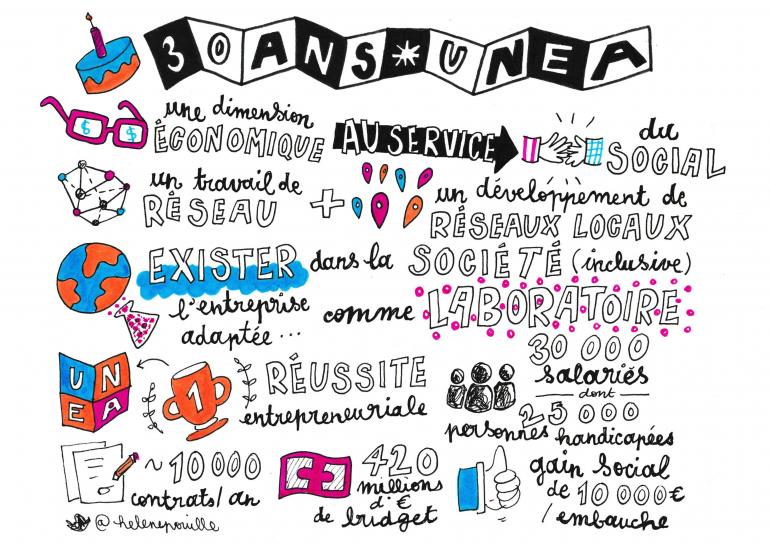 30 ANS * UNEA
une dimension
ÉCONOMIQUE AU SERVICE du
SOCIAL
$ $
un travail de
RÉSEAU + un développement de
RÉSEAUX LOCAUX
EXISTER dans la SOCIÉTÉ (inclusive)
l'entreprise
adaptée... comme LABORATOIRE
UN
EA
1
RÉUSSITE
entrepreneuriale
30 000
salariés
dont
25 000
personnes handicapées
~ 10 000
contrats/an
420
millions
d'€
de budget
gain social
de 10 000 €
/embauche
@helenepouille